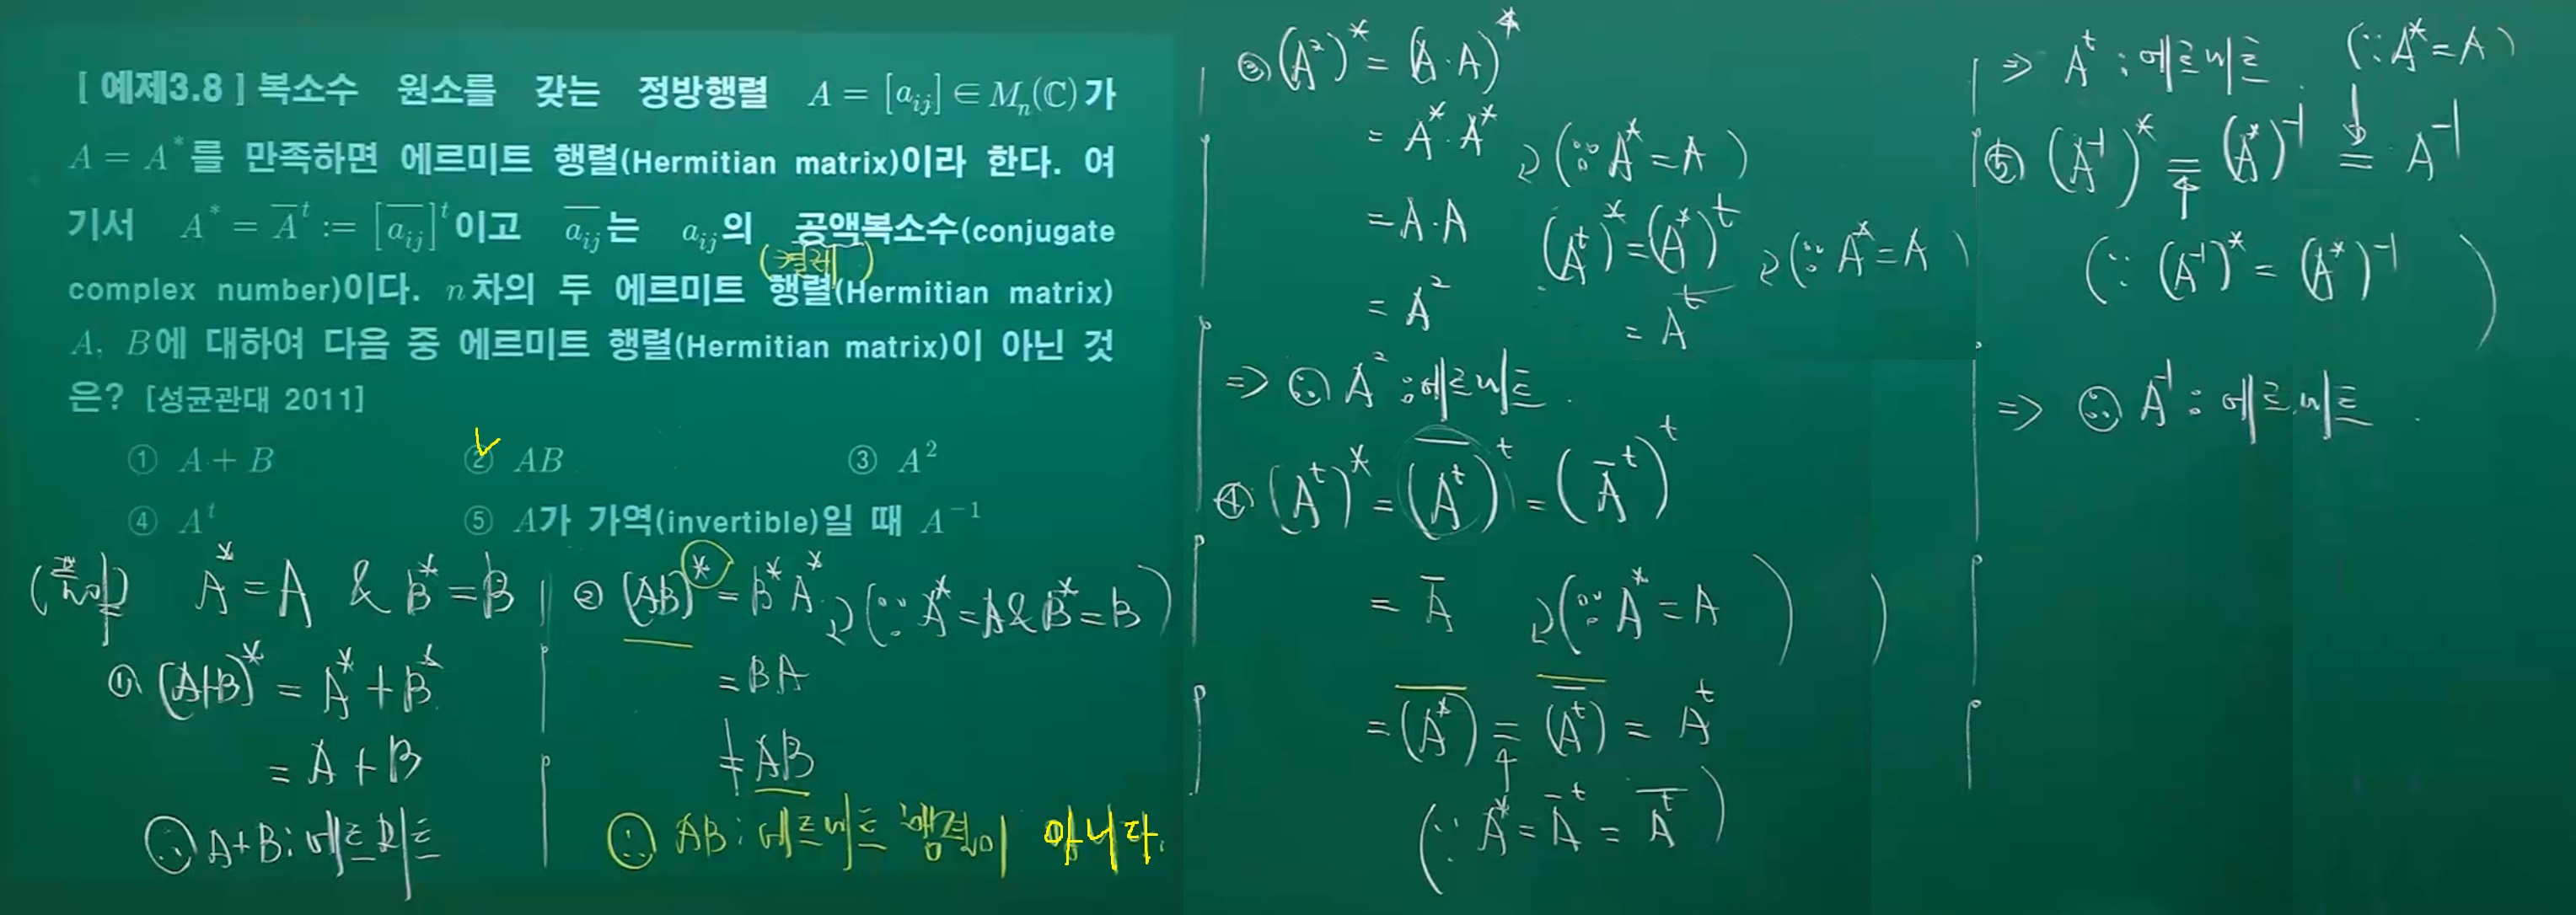 [ 예제3.8 ] 복소수 원소를 갖는 정방행렬 A = [a_{ij}] ∈ M_n(ℂ)가
A = A^*를 만족하면 에르미트 행렬(Hermitian matrix)이라 한다. 여
기서 A^* = \overline{A}^t := [\overline{a_{ij}}]^t이고 \overline{a_{ij}}는 a_{ij}의 공액복소수(conjugate
(켤레)
complex number)이다. n차의 두 에르미트 행렬(Hermitian matrix)
A, B에 대하여 다음 중 에르미트 행렬(Hermitian matrix)이 아닌 것
은? [성균관대 2011]
① A + B ② AB ③ A^2
④ A^t ⑤ A가 가역(invertible)일 때 A^{-1}
(풀이) A^* = A & B^* = B
① (A+B)^* = A^* + B^*
= A + B
∴ A+B : 에르미트
② (AB)^* = B^* A^* (∵ A^* = A & B^* = B)
= BA
≠ AB
∴ AB : 에르미트 행렬이 아니다.
③ (A^2)^* = (A·A)^*
= A^*·A^* (∵ A^* = A)
= A·A
= A^2
(A^t)^* = (A^*)^t (∵ A^* = A)
= A^t
⇒ ∴ A^2 : 에르미트.
④ (A^t)^* = (\overline{A^t})^t = (\overline{A}^t)^t
= \overline{A} (∵ A^* = A)
= \overline{(A^*)} = \overline{(\overline{A^t})} = A^t
(∵ A^* = \overline{A}^t = \overline{A^t})
⇒ A^t : 에르미트 (∵ A^* = A)
⑤ (A^{-1})^* = (A^*)^{-1} = A^{-1}
(∵ (A^{-1})^* = (A^*)^{-1})
⇒ ∴ A^{-1} : 에르미트.